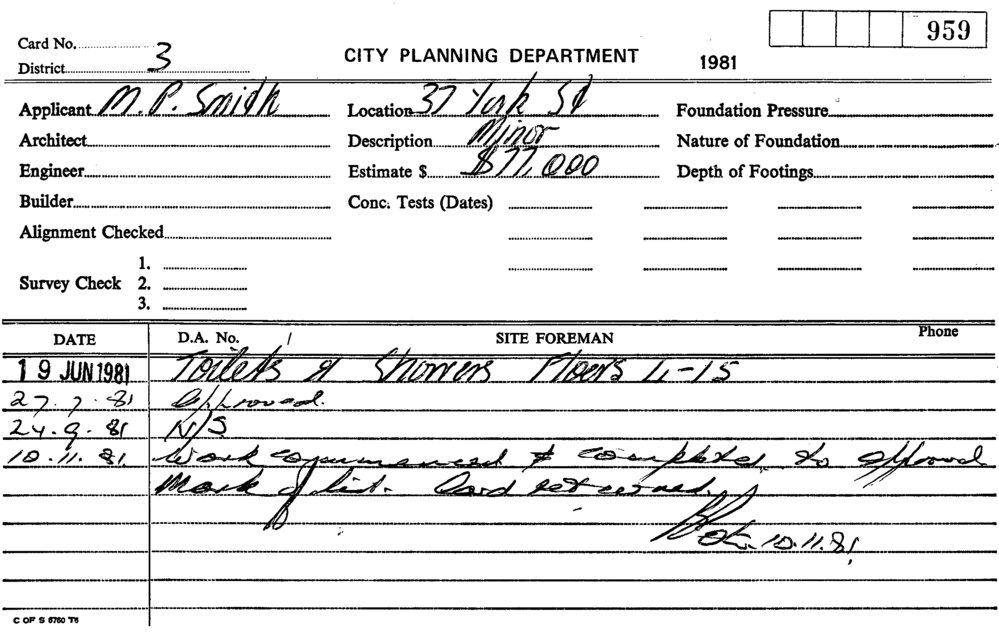 959
Card No.
District 3
CITY PLANNING DEPARTMENT 1981
Applicant M. P. Smith Location 37 York St Foundation Pressure
Architect Description Minor Nature of Foundation
Engineer Estimate $ $77,000 Depth of Footings
Builder Conc. Tests (Dates)
Alignment Checked
1.
Survey Check 2.
3.
DATE D.A. No. / SITE FOREMAN Phone
19 JUN 1981 Toilets & Showers Floors 4-15
27.7.81 Approved.
24.9.81 N/S
10.11.81. Work commenced & completed to approval
Mark of list. Card returned.
10.11.81.
C OF S 6760 T6